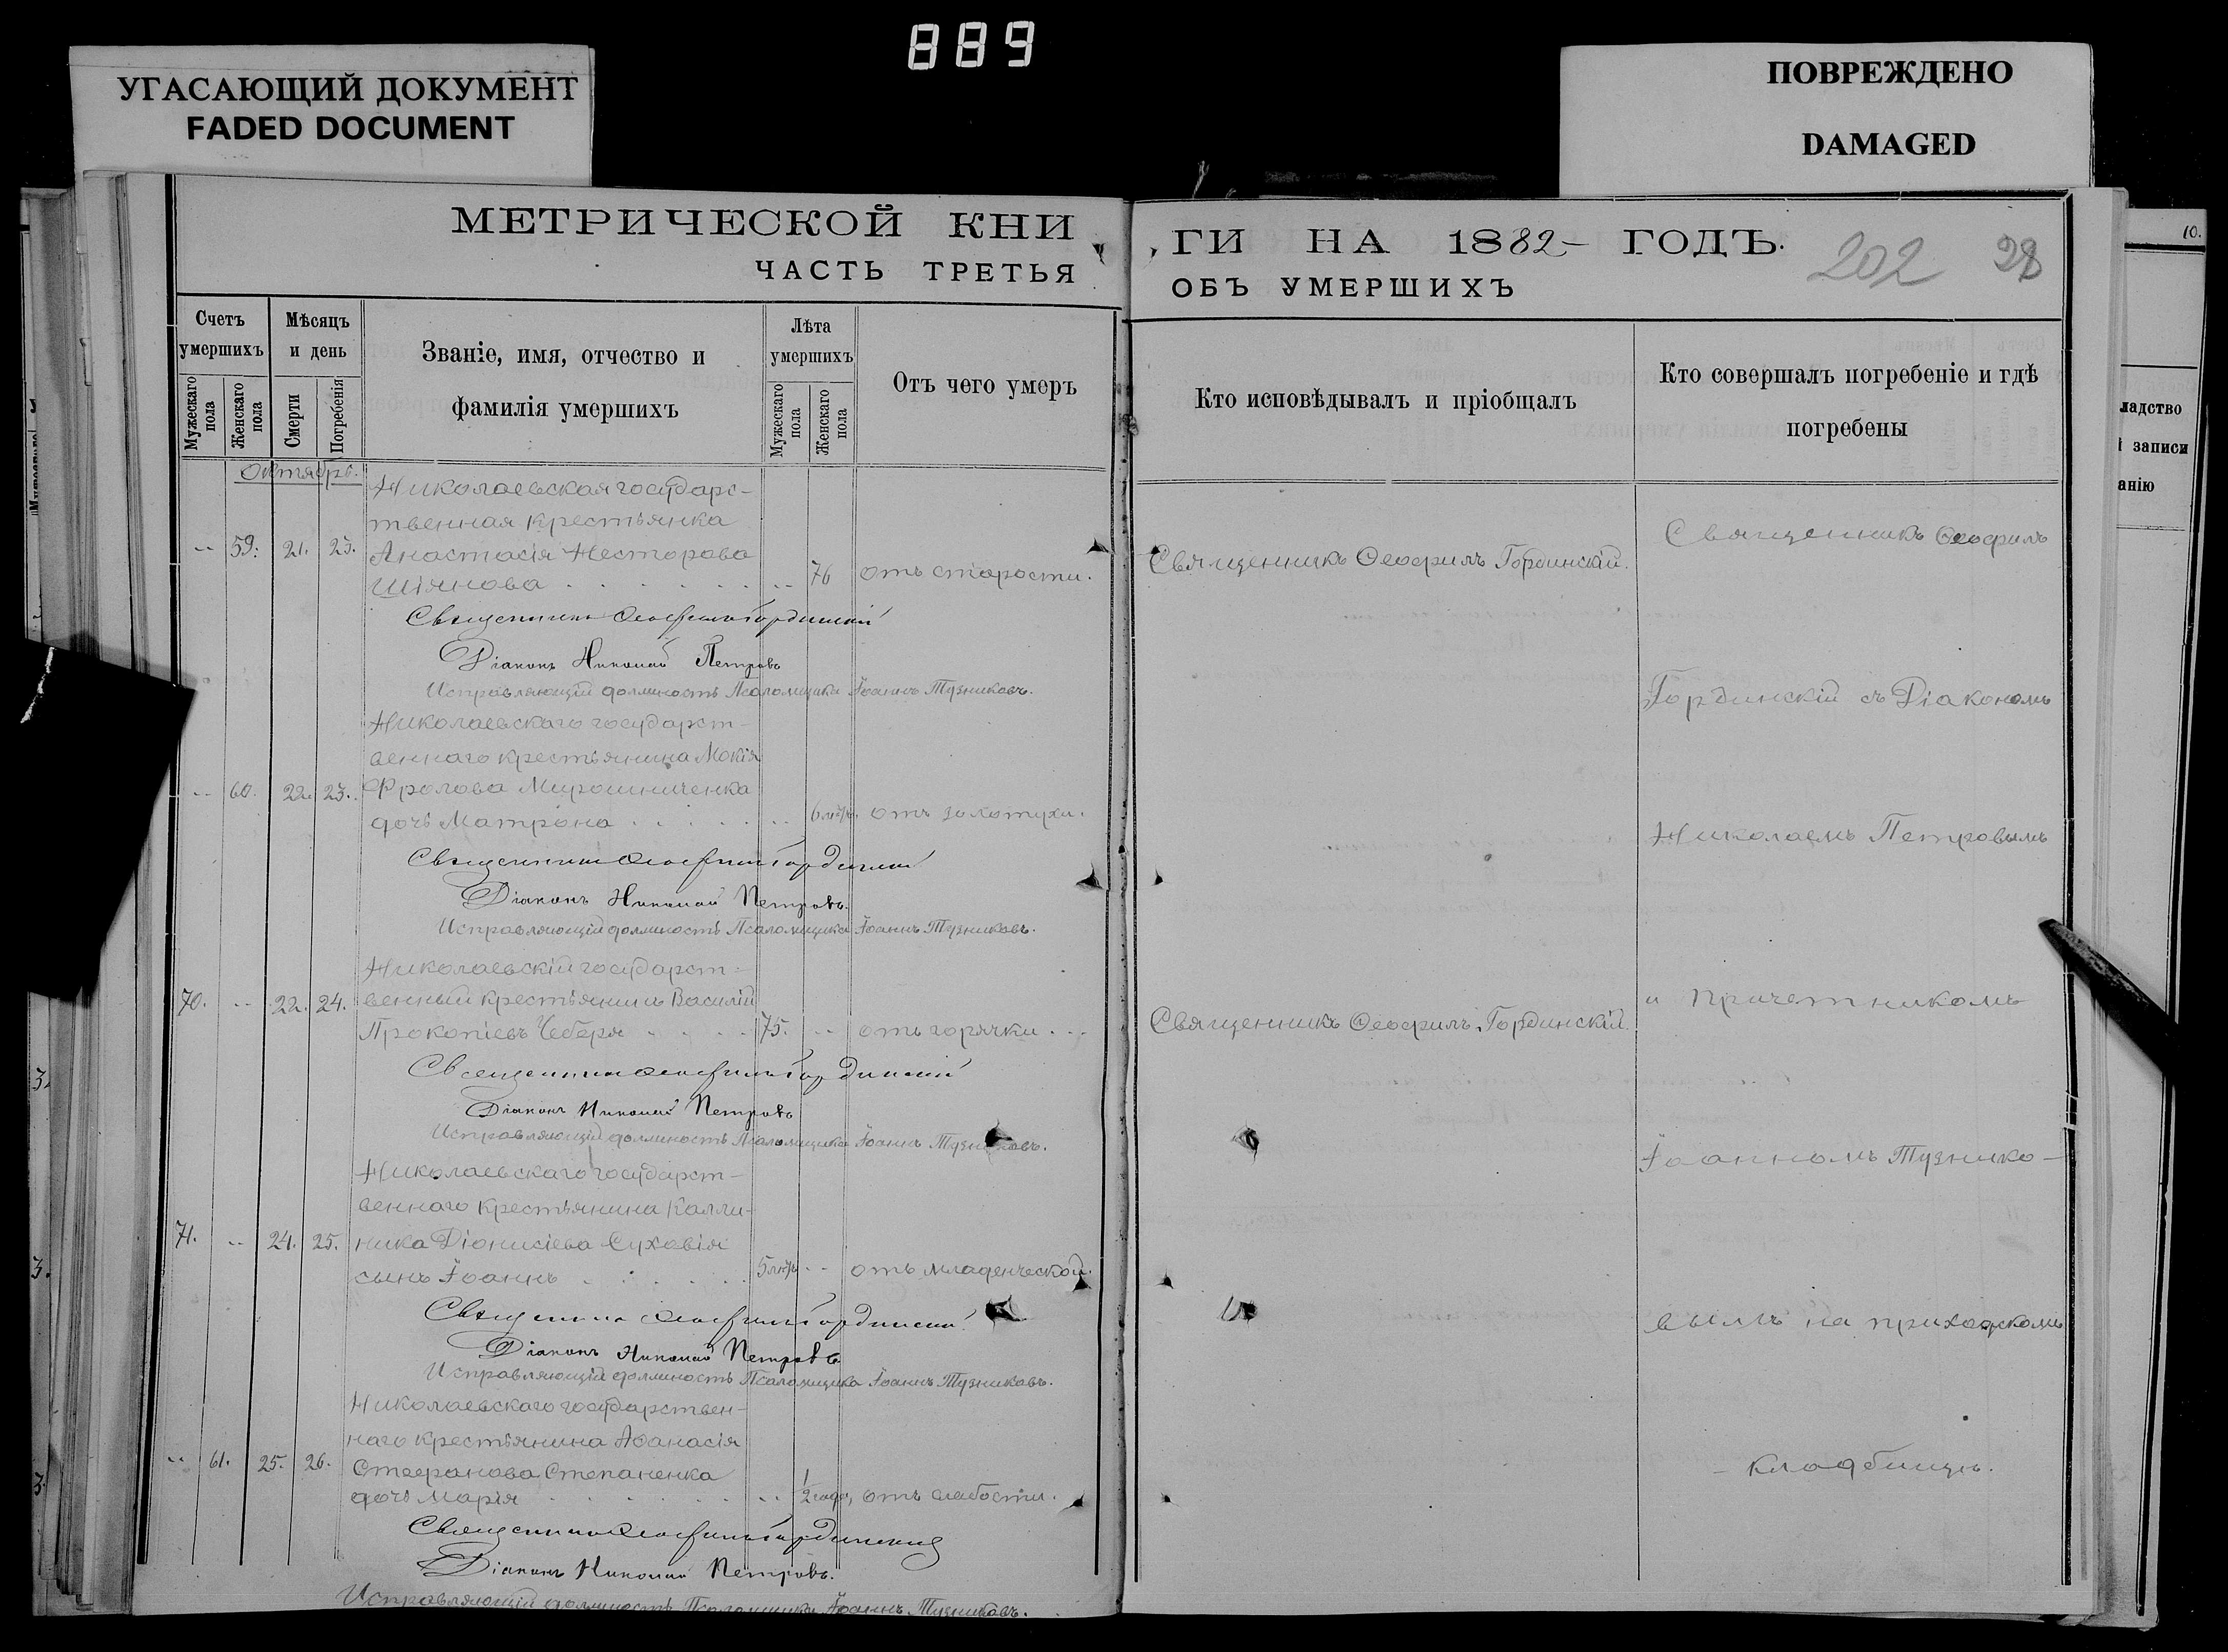 889
УГАСАЮЩИЙ ДОКУМЕНТ
FADED DOCUMENT
ПОВРЕЖДЕНО
DAMAGED
МЕТРИЧЕСКОЙ КНИ
ЧАСТЬ ТРЕТЬЯ
Счетъ умершихъ
Мужескаго пола
Женскаго пола
Мѣсяцъ и день
Смерти
Погребенія
Званіе, имя, отчество и
фамилія умершихъ
Лѣта умершихъ
Мужескаго пола
Женскаго пола
Отъ чего умеръ
Октябрь.
Николаевская государс-
твенная крестьянка
59. 21. 23. Анастасія Несторова
Шіянова 76 отъ старости.
Священникъ Ѳеофилъ Гординскій
Діаконъ Николай Петровъ
Исправляющій должность Псаломщика Іоаннъ Тузниковъ.
Николаевскаго государст-
веннаго крестьянина Мокія
60. 22. 23. Фролова Мирошниченка
дочь Матрона 6 отъ золотухи.
Священникъ Ѳеофилъ Гординскій
Діаконъ Николай Петровъ.
Исправляющій должность Псаломщика Іоаннъ Тузниковъ.
Николаевскій государст-
70. 22. 24. венный крестьянинъ Василій
Прокопіевъ Чеберя 75. отъ горячки.
Священникъ Ѳеофилъ Гординскій
Діаконъ Николай Петровъ
Исправляющій должность Псаломщика Іоаннъ Тузниковъ.
Николаевскаго государст-
веннаго крестьянина Калли-
71. 24. 25. ника Діонисіева Суховія
сынъ Іоаннъ 5 отъ младенческой.
Священникъ Ѳеофилъ Гординскій
Діаконъ Николай Петровъ
Исправляющій должность Псаломщика Іоаннъ Тузниковъ.
Николаевскаго государствен-
наго крестьянина Аѳанасія
61. 25. 26. Стефанова Степаненка
дочь Марія 1/2 года, отъ слабости.
Священникъ Ѳеофилъ Гординскій
Діаконъ Николай Петровъ.
Исправляющій должность Псаломщика Іоаннъ Тузниковъ.
ГИ НА 1882 ГОДЪ.
202 28
ОБЪ УМЕРШИХЪ
Кто исповѣдывалъ и пріобщалъ
Кто совершалъ погребеніе и гдѣ
погребены
Священникъ Ѳеофилъ Гординскій.
Священникъ Ѳеофилъ Гординскій.
Священникъ Ѳеофилъ
Гординскій съ Діакономъ
Николаемъ Петровымъ
и причетникомъ
Іоанномъ Тузнико-
вымъ на приходскомъ
кладбищѣ.
10.
ладство
і записи
анію